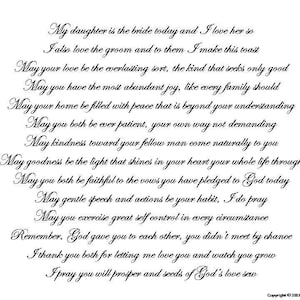 My daughter is the bride today and I love her so
I also love the groom and to them I make this toast
May your love be the everlasting sort, the kind that seeks only good
May you have the most abundant joy, like every family should
May your home be filled with peace that is beyond your understanding
May you both be ever patient, your own way not demanding
May kindness toward your fellow man come naturally to you
May goodness be the light that shines in your heart your whole life through
May you both be faithful to the vows you have pledged to God today
May gentle speech and actions be your habit, I do pray
May you exercise great self control in every circumstance
Remember, God gave you to each other, you didn't meet by chance
I thank you both for letting me love you and watch you grow
I pray you will prosper and seeds of God's love sew
Copyright ©